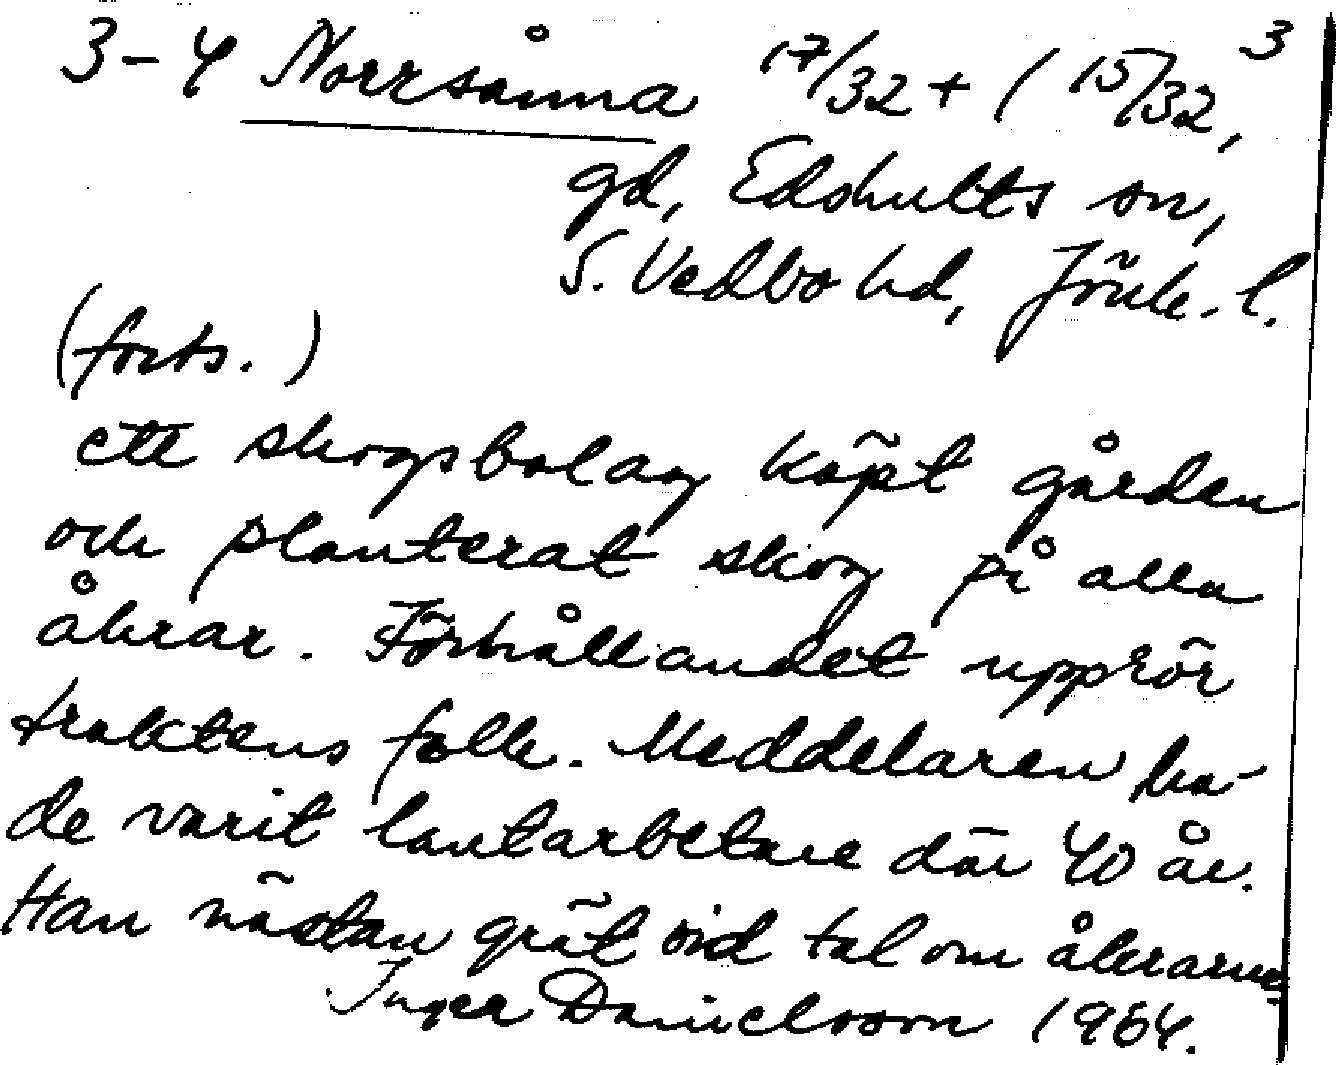 3-4 Norrsånna 17/32 + (15/32, 3
gd, Edshults sn,
S. Vedbo hd, Jönk. l.
(forts.)
ett skogsbolag köpt gården
och planterat skog på alla
åkrar. Förhållandet upprör
traktens folk. Meddelaren ha-
de varit lantarbetare där 40 år.
Han nästan grät vid tal om åkrarna
Inger Danielsson 1964.